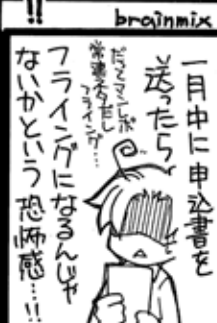 !!
brainmix
一月中に申込書を
送ったら
だってマンレポ
常連ネタだし
フライング…
フライングになるんじゃ
ないかという恐怖感…!!